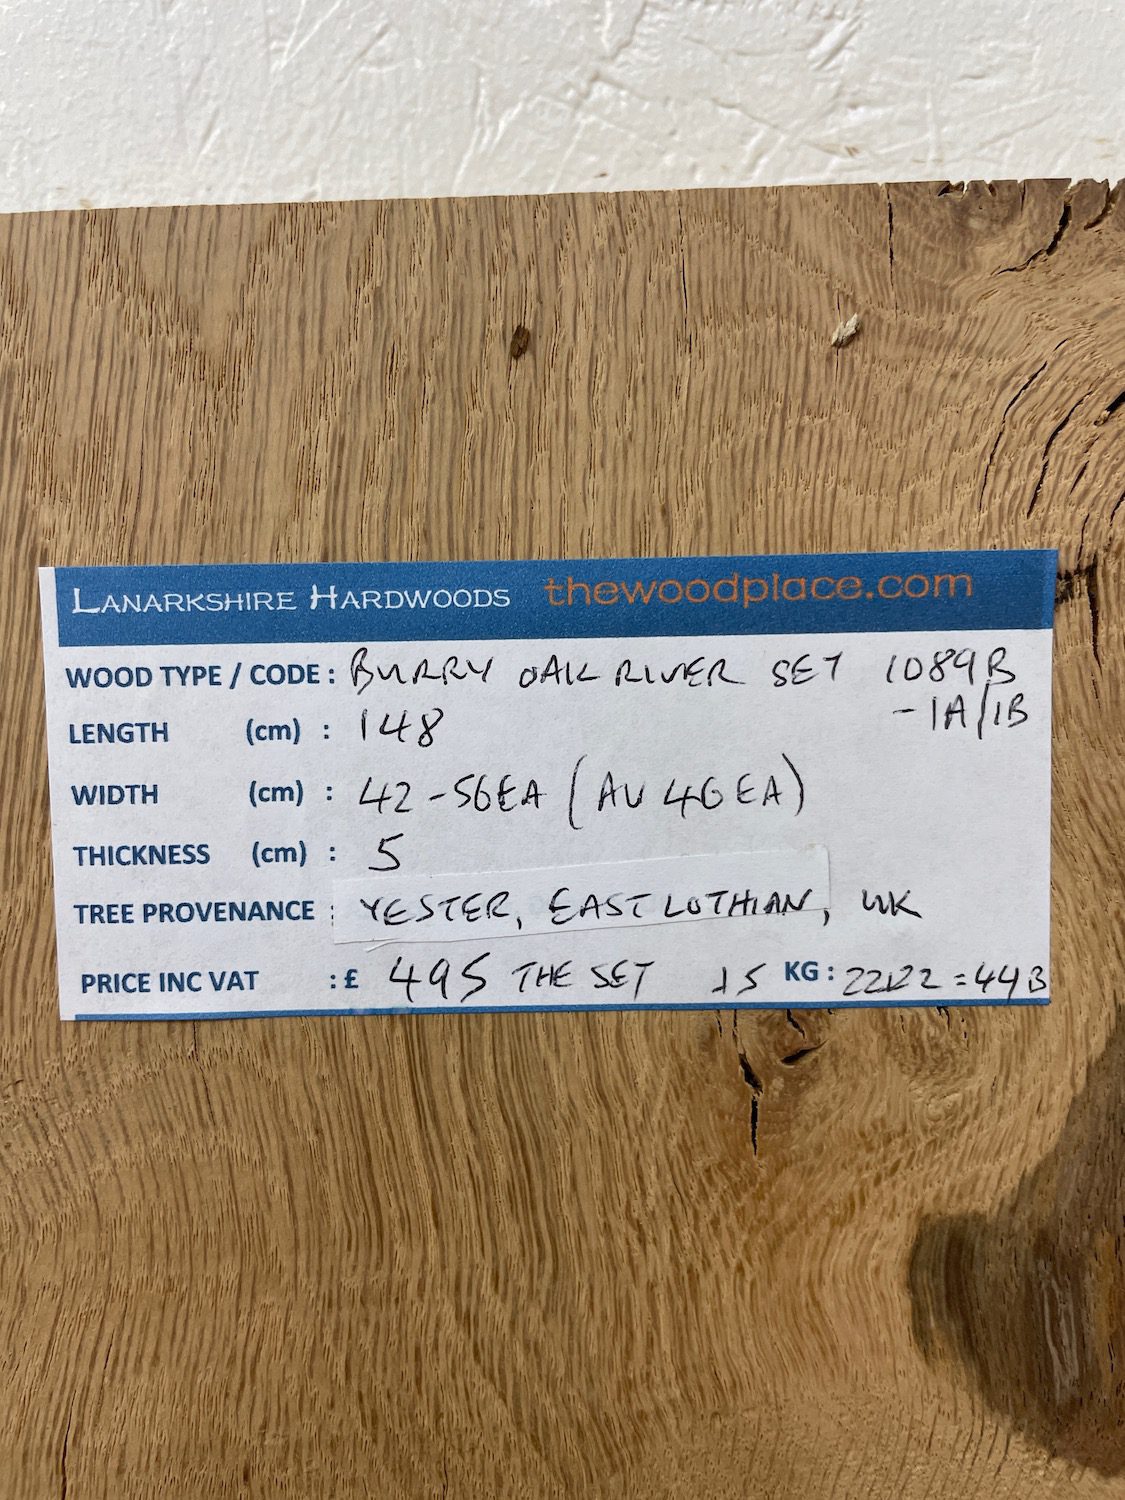 LANARKSHIRE HARDWOODS thewoodplace.com
WOOD TYPE / CODE : BURRY OAK RIVER SET 1089B
-1A/1B
LENGTH (cm) : 148
WIDTH (cm) : 42-56EA (AV 46EA)
THICKNESS (cm) : 5
TREE PROVENANCE : YESTER, EAST LOTHIAN, UK
PRICE INC VAT : £ 495 THE SET KG :